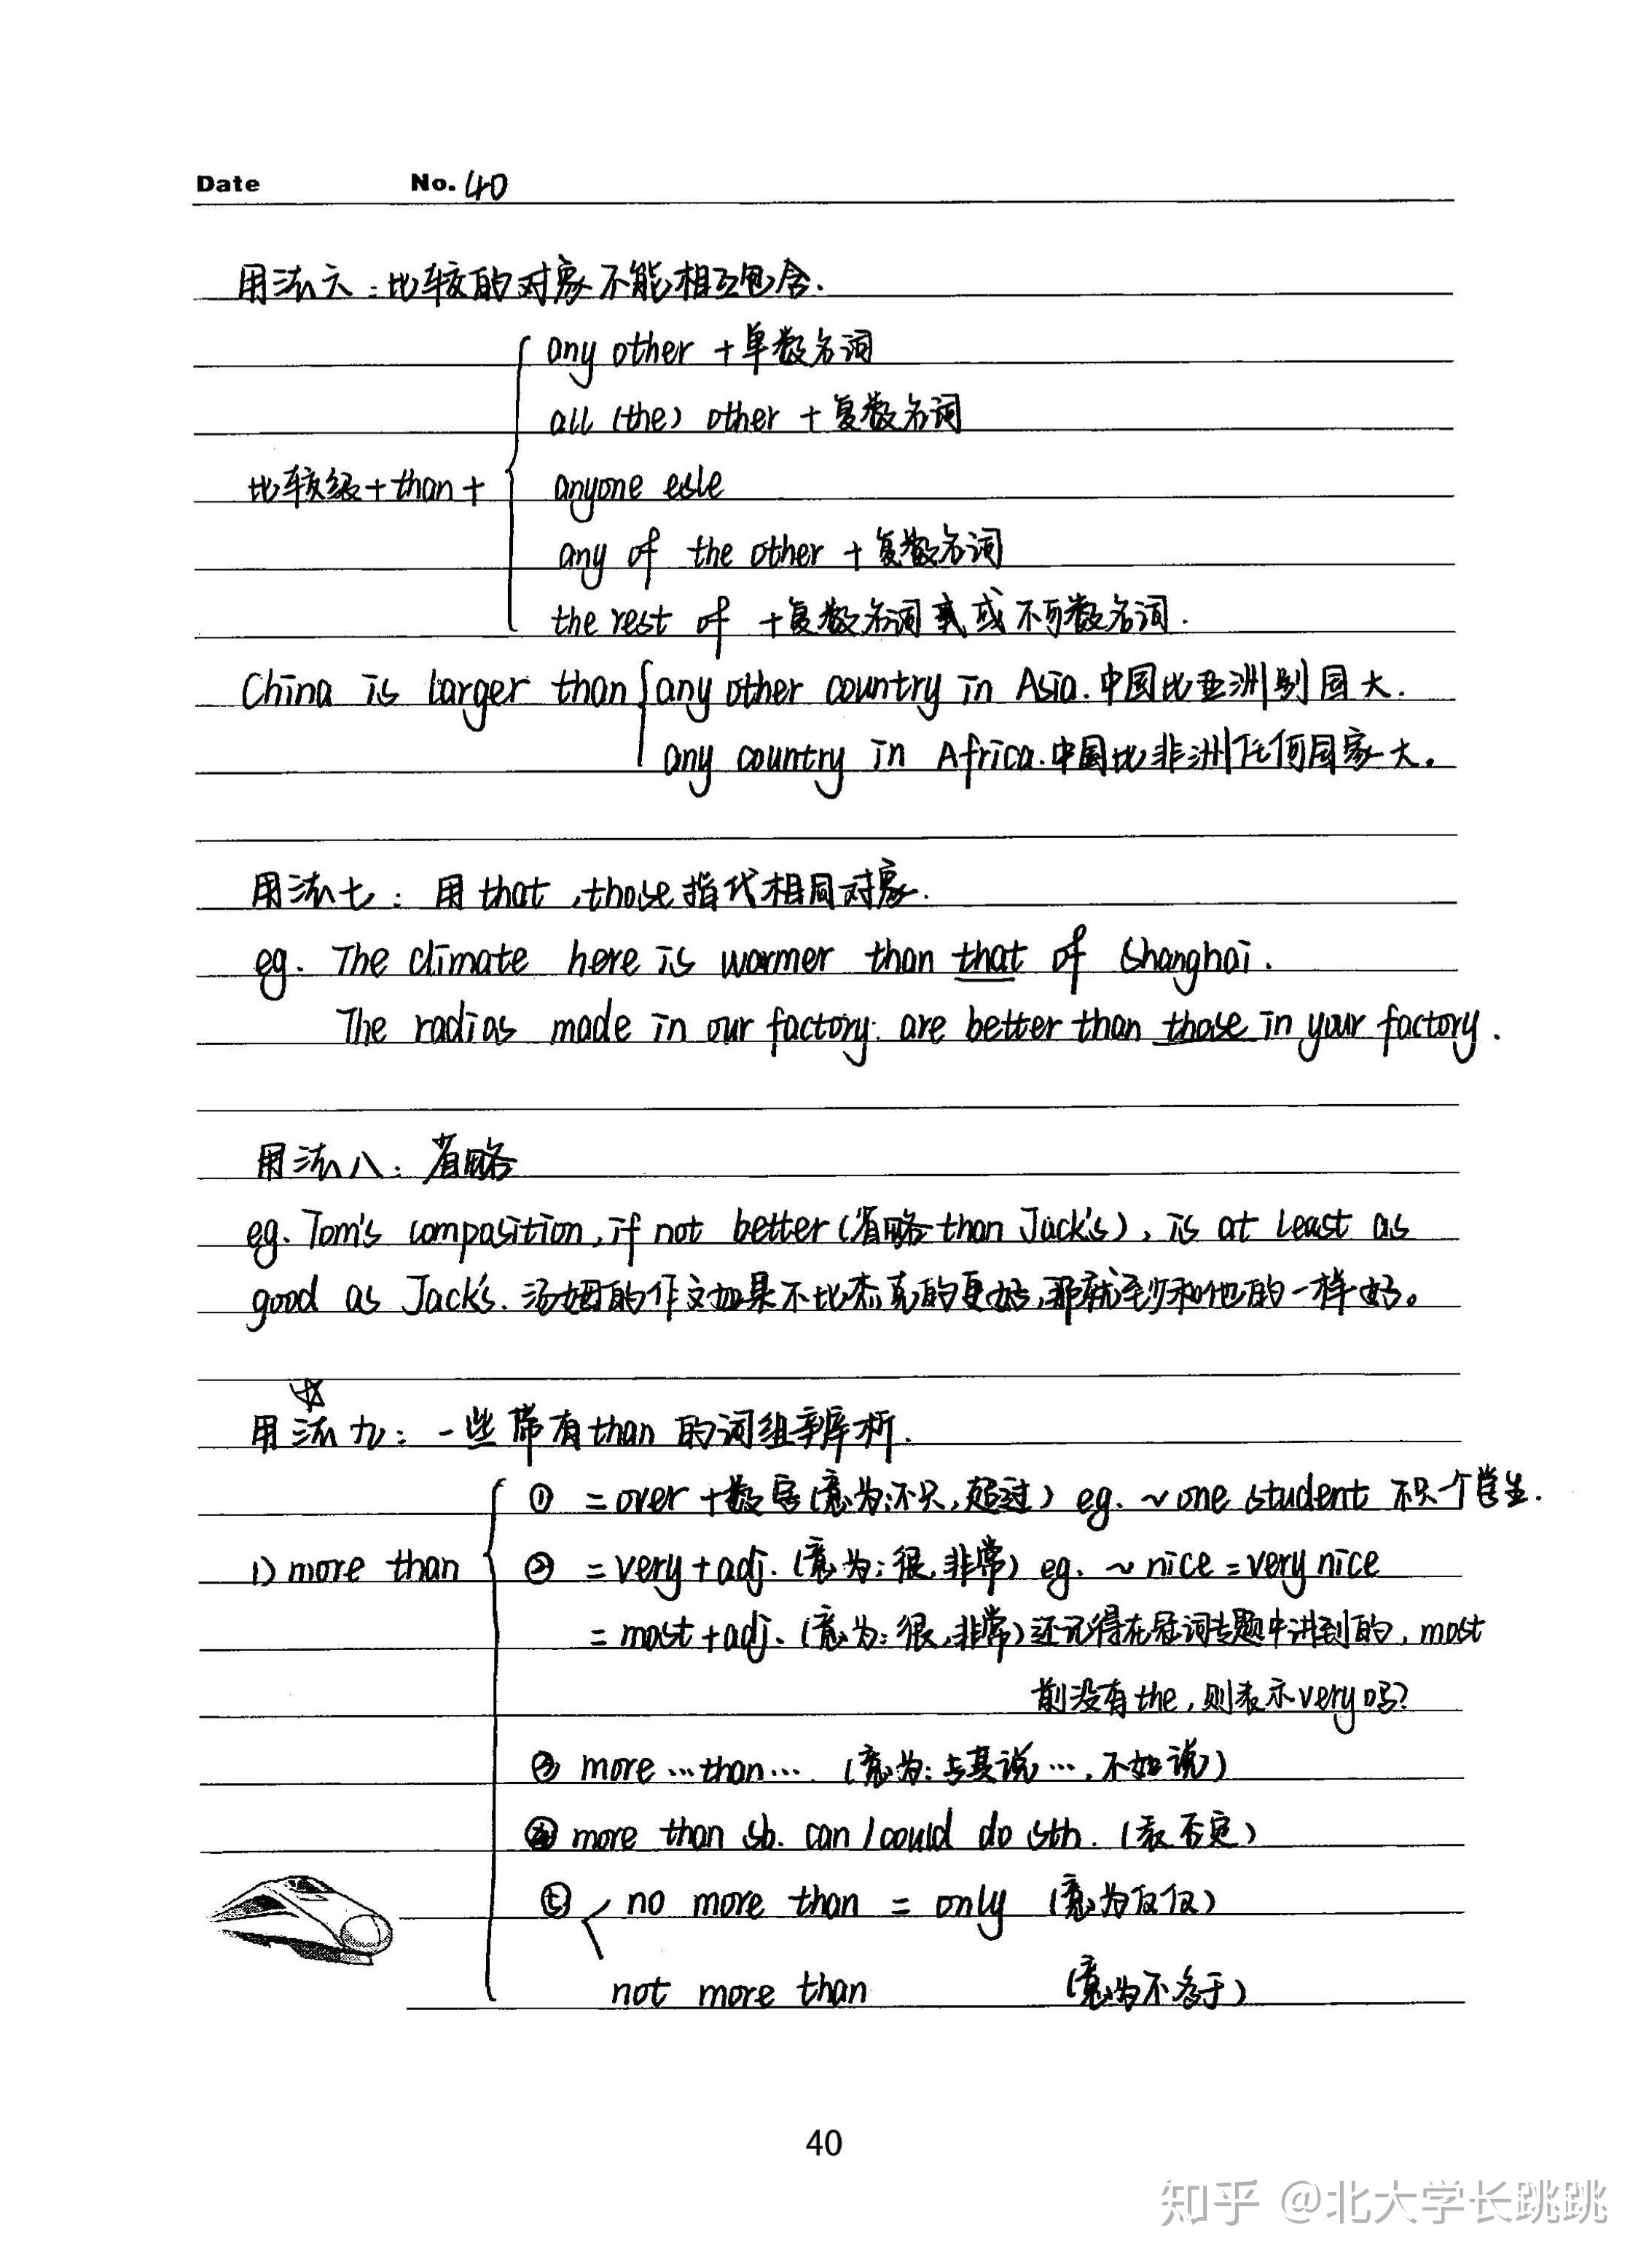 Date No. 40
用法六：比较的对象不能相互包含.
any other +单数名词
all (the) other +复数名词
比较级+than+ anyone esle
any of the other +复数名词
the rest of +复数名词或不可数名词.
China is larger than any other country in Asia.中国比亚洲别国大.
any country in Africa.中国比非洲任何国家大。
用法七：用that,those指代相同对象.
eg. The climate here is warmer than that of Shanghai.
The radios made in our factory are better than those in your factory.
用法八：省略
eg. Tom's composition, if not better(省略than Jack's), is at least as
good as Jack's.汤姆的作文如果不比杰克的更好,那就至少和他的一样好。
用法九：一些带有than的词组辨析.
① =over+数字(意为:不只,超过) eg. ~one student 不只一个学生.
1) more than ② =very+adj.(意为:很,非常) eg. ~nice=very nice
=most+adj.(意为:很,非常)还记得在冠词专题中讲到的,most
前没有the,则表示very吗?
③ more…than….(意为:与其说…,不如说)
④ more than sb. can/could do sth.(表否定)
⑤ no more than = only (意为仅仅)
not more than (意为不多于)
40
知乎 @北大学长跳跳